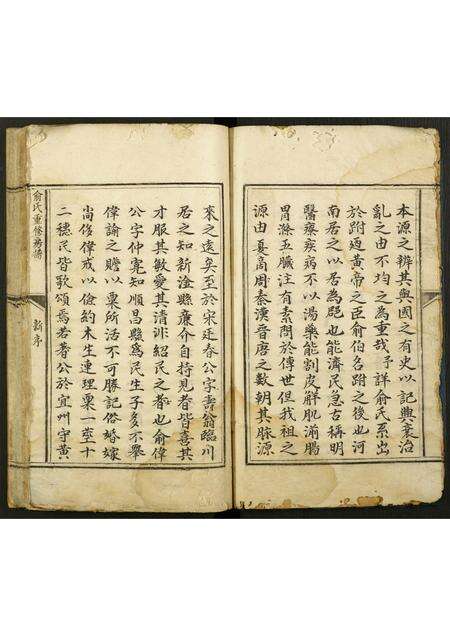 本源之辨其與國之有史以記興衰治
亂之由不均之為重哉予詳俞氏系出
於跗迺黃帝之臣俞伯名跗之後也河
南居之以居為郡也能濟民急古稱明
醫療疾病不以湯藥能割皮解肌湔腸
胃滌五臟注有素問於傳世但我祖之
源由夏商周秦漢晉唐之數朝其脉源
來之遠矣至於宋廷春公字壽翁臨川
居之知新淦縣廉介自持見者皆喜其
才服其敏愛其清洪紹民之者也俞偉
公字仲寬知順昌縣為民生子多不舉
偉諭之贍以粟所活不可勝記俗婚嫁
尚侈偉戒以儉約木生連理粟一莖十
二穗民皆歌頌焉若著公於宜州守黃
俞氏重修房譜
新序